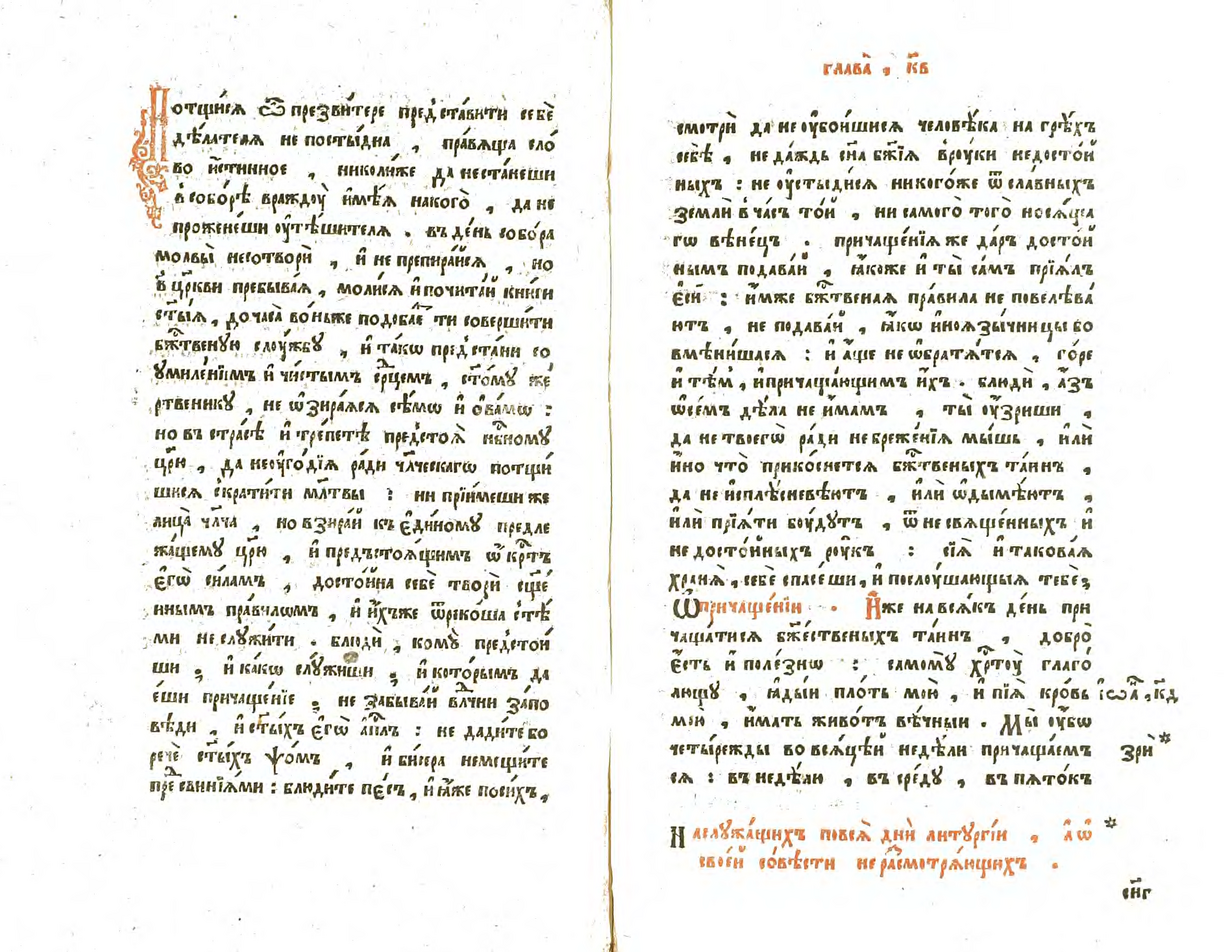 Потщи́сѧ ѿ презви́тере предста́вити себѐ
дѣ́лателѧ не посты́дна , пра́вѧща сло́
во и҆́стинное , николи́же да неста́неши
в̾собо́рѣ враждоу̀ и҆мѣ́ѧ нако́гѡ , да не
проже́неши оу҆тѣ́шителѧ . въ де́нь собо́ра
молвы̀ несотворѝ , и҆ не препира́йсѧ , но
в̾ цр҃кви пребыва́ѧ , моли́сѧ и҆ почита́й кни́ги
ст҃ы́ѧ , до часа̀ во́ньже подоба́е ти соверши́ти
бж҃твеную слоу́жбꙋ , и҆ та́кѡ предста́ни со
ᲂумиле́нїимъ и҆ чи́стымъ ср҃цемъ , ст҃о́мꙋ же́
ртвеникꙋ , не ѡ҆зира́ѧсѧ сѣ́мѡ и҆ ѻ҆ва́мѡ :
но въ стра́сѣ и҆ тре́петѣ предстоѧ̀ нб҃номꙋ
цр҃ю̀ , да неоу҆го́дїѧ ра́ди чл҃ческагѡ потщи́
шисѧ съкрати́ти мл҃твы : ни прїи́меши же
лица̀ чл҃ча , но взира́й къ є҆ди́номꙋ предле
жа́щемꙋ цр҃ю̀ , и҆ предъстоѧ́щимъ ѡ҆́кр҃тъ
є҆гѡ̀ си́ламъ , досто́йна себѐ творѝ сщ҃е́
ннымъ пра́виломъ , и҆ и҆́хъже ѿреко́ша ст҃ѣ́
ми не слꙋжи́ти . блюдѝ , комꙋ̀ предстои́
ши , и҆ ка́кѡ слꙋ́жиши , и҆ кото́рымъ да
е́ши причаще́нїе , не забыва́й влⷣчни за́по
вѣди , и҆ ст҃ы́хъ є҆гѡ̀ а҆пⷭ҇лъ : не дади́те бо
речѐ ст҃ы́хъ ѱо́мъ , и҆ би́сера неме́щите
пре свинїѧ́ми : блюди́те пе́съ , и҆ ꙗ҆́же по си́хъ ,
глава̀ , к҃в
смотрѝ да не оу҆бои́шисѧ человѣ́ка на грѣ́хъ
себѣ̀ , не да́ждь сн҃а бж҃їѧ в̾роу́ки недосто́й
ныхъ : не оу҆стыди́сѧ никого́же ѿ сла́вныхъ
землѝ в̾ ча́съ то́й , ни самого̀ того̀ носѧ́ща
гѡ вѣне́цъ . причаще́нїѧ же да́ръ досто́й
нымъ подава́й , ꙗ҆́коже и҆ ты̀ са́мъ прїѧ́лъ
є҆сѝ : и҆́мже бж҃твенаѧ пра́вила не повелѣва́
ютъ , не подава́й , ꙗ҆́кѡ и҆ноѧзы́чницы бо
вмѣни́шасѧ : и҆ а҆́ще не ѡ҆братѧ́тсѧ , го́ре
и҆ тѣ́м , и҆ причаща́ющимъ и҆̀хъ . блюдѝ , а҆́зъ
ѡ҆ се́мъ дѣ́ла не и҆́мамъ , ты̀ оу҆́зриши ,
да не твоегѡ̀ ра́ди небреже́нїѧ мы́шь , и҆лѝ
и҆́но что̀ прикоснется бж҃твеныхъ та́инъ ,
да не и҆сплѣ́сневѣютъ , и҆лѝ ѡ҆дымѣ́ютъ ,
и҆лѝ прїѧ́ти боу́дутъ , ѿ не свѧще́нныхъ и҆
недосто́йныхъ роу́къ : сїѧ̀ и҆ такова́ѧ
хранѧ̀ , себѐ спасе́ши , и҆ послоу́шающыѧ тебѐ ;
Ѡ҆ причаще́нїи . И҆́же на всѧ́къ де́нь при
чаща́тисѧ бж҃ественыхъ та́инъ , добро̀
є҆́сть и҆ поле́знѡ : самомꙋ̀ хр҃тоу̀ глаго́
лющꙋ , ꙗ҆ды́и пло́ть мою̀ , и҆ пїѧ̀ кро́вь і҆ѡа́ , к҃д
мою̀ , и҆́мать живо́тъ вѣ́чныи . Мы́ оу҆́бѡ
четы́режды во всѧ́цѣй недѣ́ли причаща́емъ зрѝ *
сѧ : въ недѣ́лю , въ сре́дꙋ , въ пѧто́къ
На слꙋжа́щихъ по всѧ̀ днѝ литꙋргі́и , а҆ ѡ҆ *
свое́й со́вѣсти не расмотрѧ́ющихъ .
сн҃г